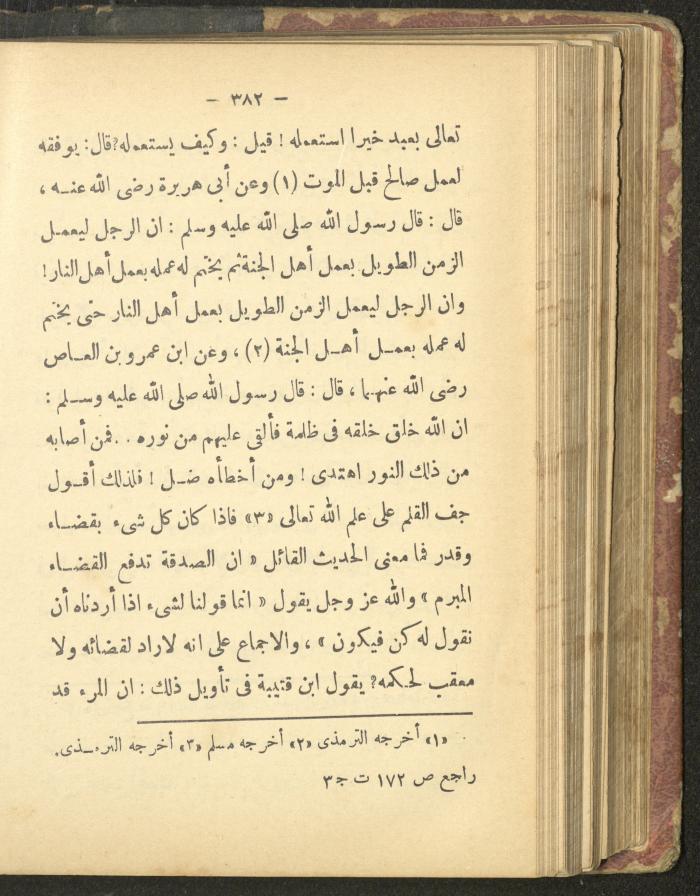 — ٣٨٢ —
تعالى بعبد خيرا استعمله ! قيل : وكيف يستعمله؟قال: يوفقه
لعمل صالح قبل الموت (١) وعن أبى هريرة رضى الله عنه ،
قال : قال رسول الله صلى الله عليه وسلم : ان الرجل ليعمل
الزمن الطويل بعمل أهل الجنةثم يختم له عمله بعمل أهل النار!
وان الرجل ليعمل الزمن الطويل بعمل أهل النار حتى يختم
له عمله بعمل أهل الجنة (٢) ، وعن ابن عمرو بن العاص
رضى الله عنهما ، قال : قال رسول الله صلى الله عليه وسلم :
ان الله خلق خلقه فى ظلمة فألقى عليهم من نوره . . فمن أصابه
من ذلك النور اهتدى ! ومن أخطأه ضل ! فلذلك أقول
جف القلم على علم الله تعالى «٣» فاذا كان كل شىء بقضاء
وقدر فما معنى الحديث القائل « ان الصدقة تدفع القضاء
المبرم » والله عز وجل يقول « انما قولنا لشىء اذا أردناه أن
نقول له كن فيكون » ، والاجماع على انه لاراد لقضائه ولا
معقب لحكمه؟ يقول ابن قتيبة فى تأويل ذلك : ان المرء قد
«١» أخرجه الترمذى «٢» أخرجه مسلم «٣» أخرجه الترمذى.
راجع ص ١٧٢ ت ج٣